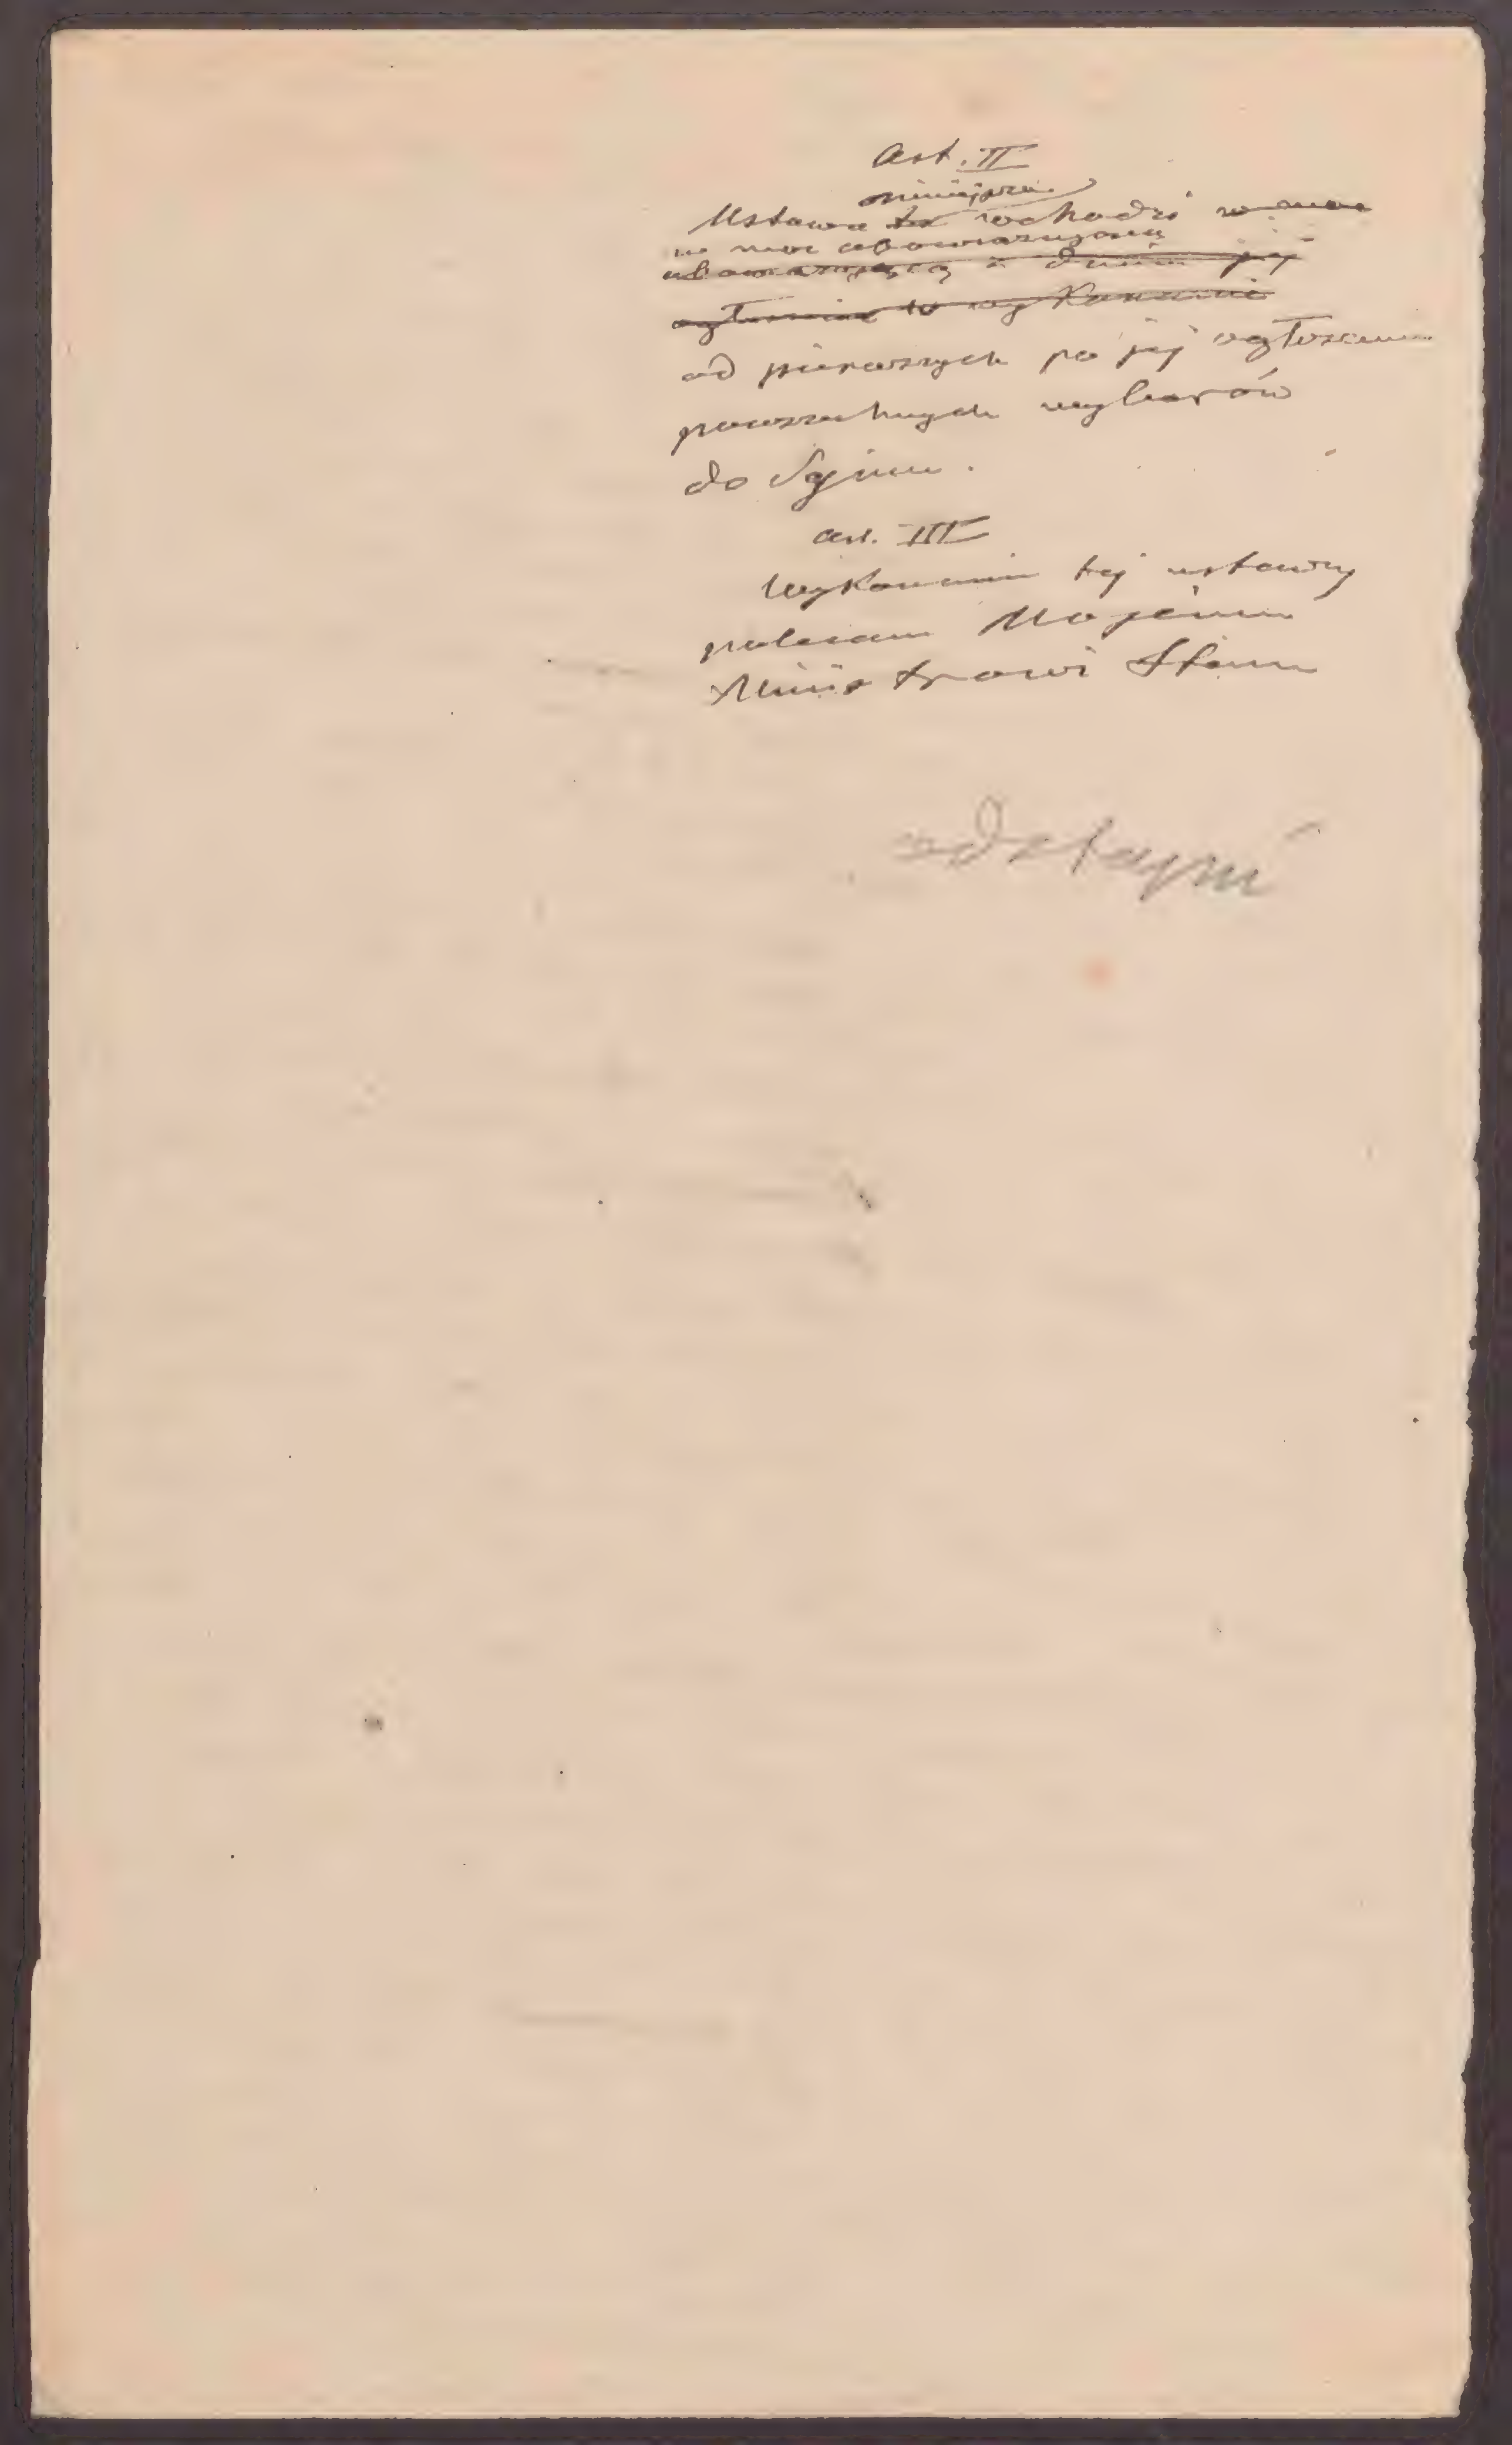 Art. II
niniejsza
Ustawa ta wchodzi w moc
w moc obowiązującą
obowiązującą z dniem jej
ogłoszenia to wykonanie
od pierwszych po jej ogłoszeniu
powszechnych wyborów
do Sejmu.
Art. III
Wykonanie tej ustawy
polecam Mojemu
Ministrowi Stanu
odstąpić